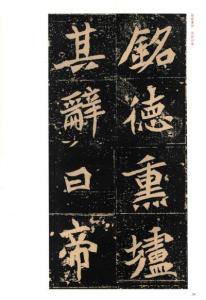 銘德熏壚
其辭曰帝